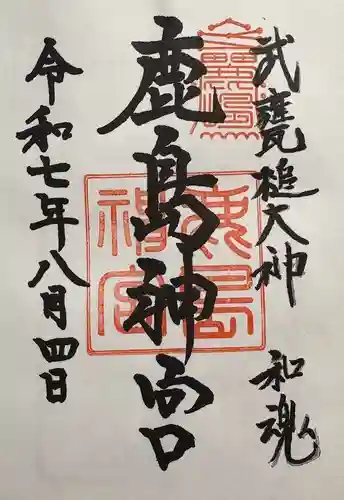 武甕槌大神 和魂
鹿島神宮
令和七年八月四日
鹿島神宮